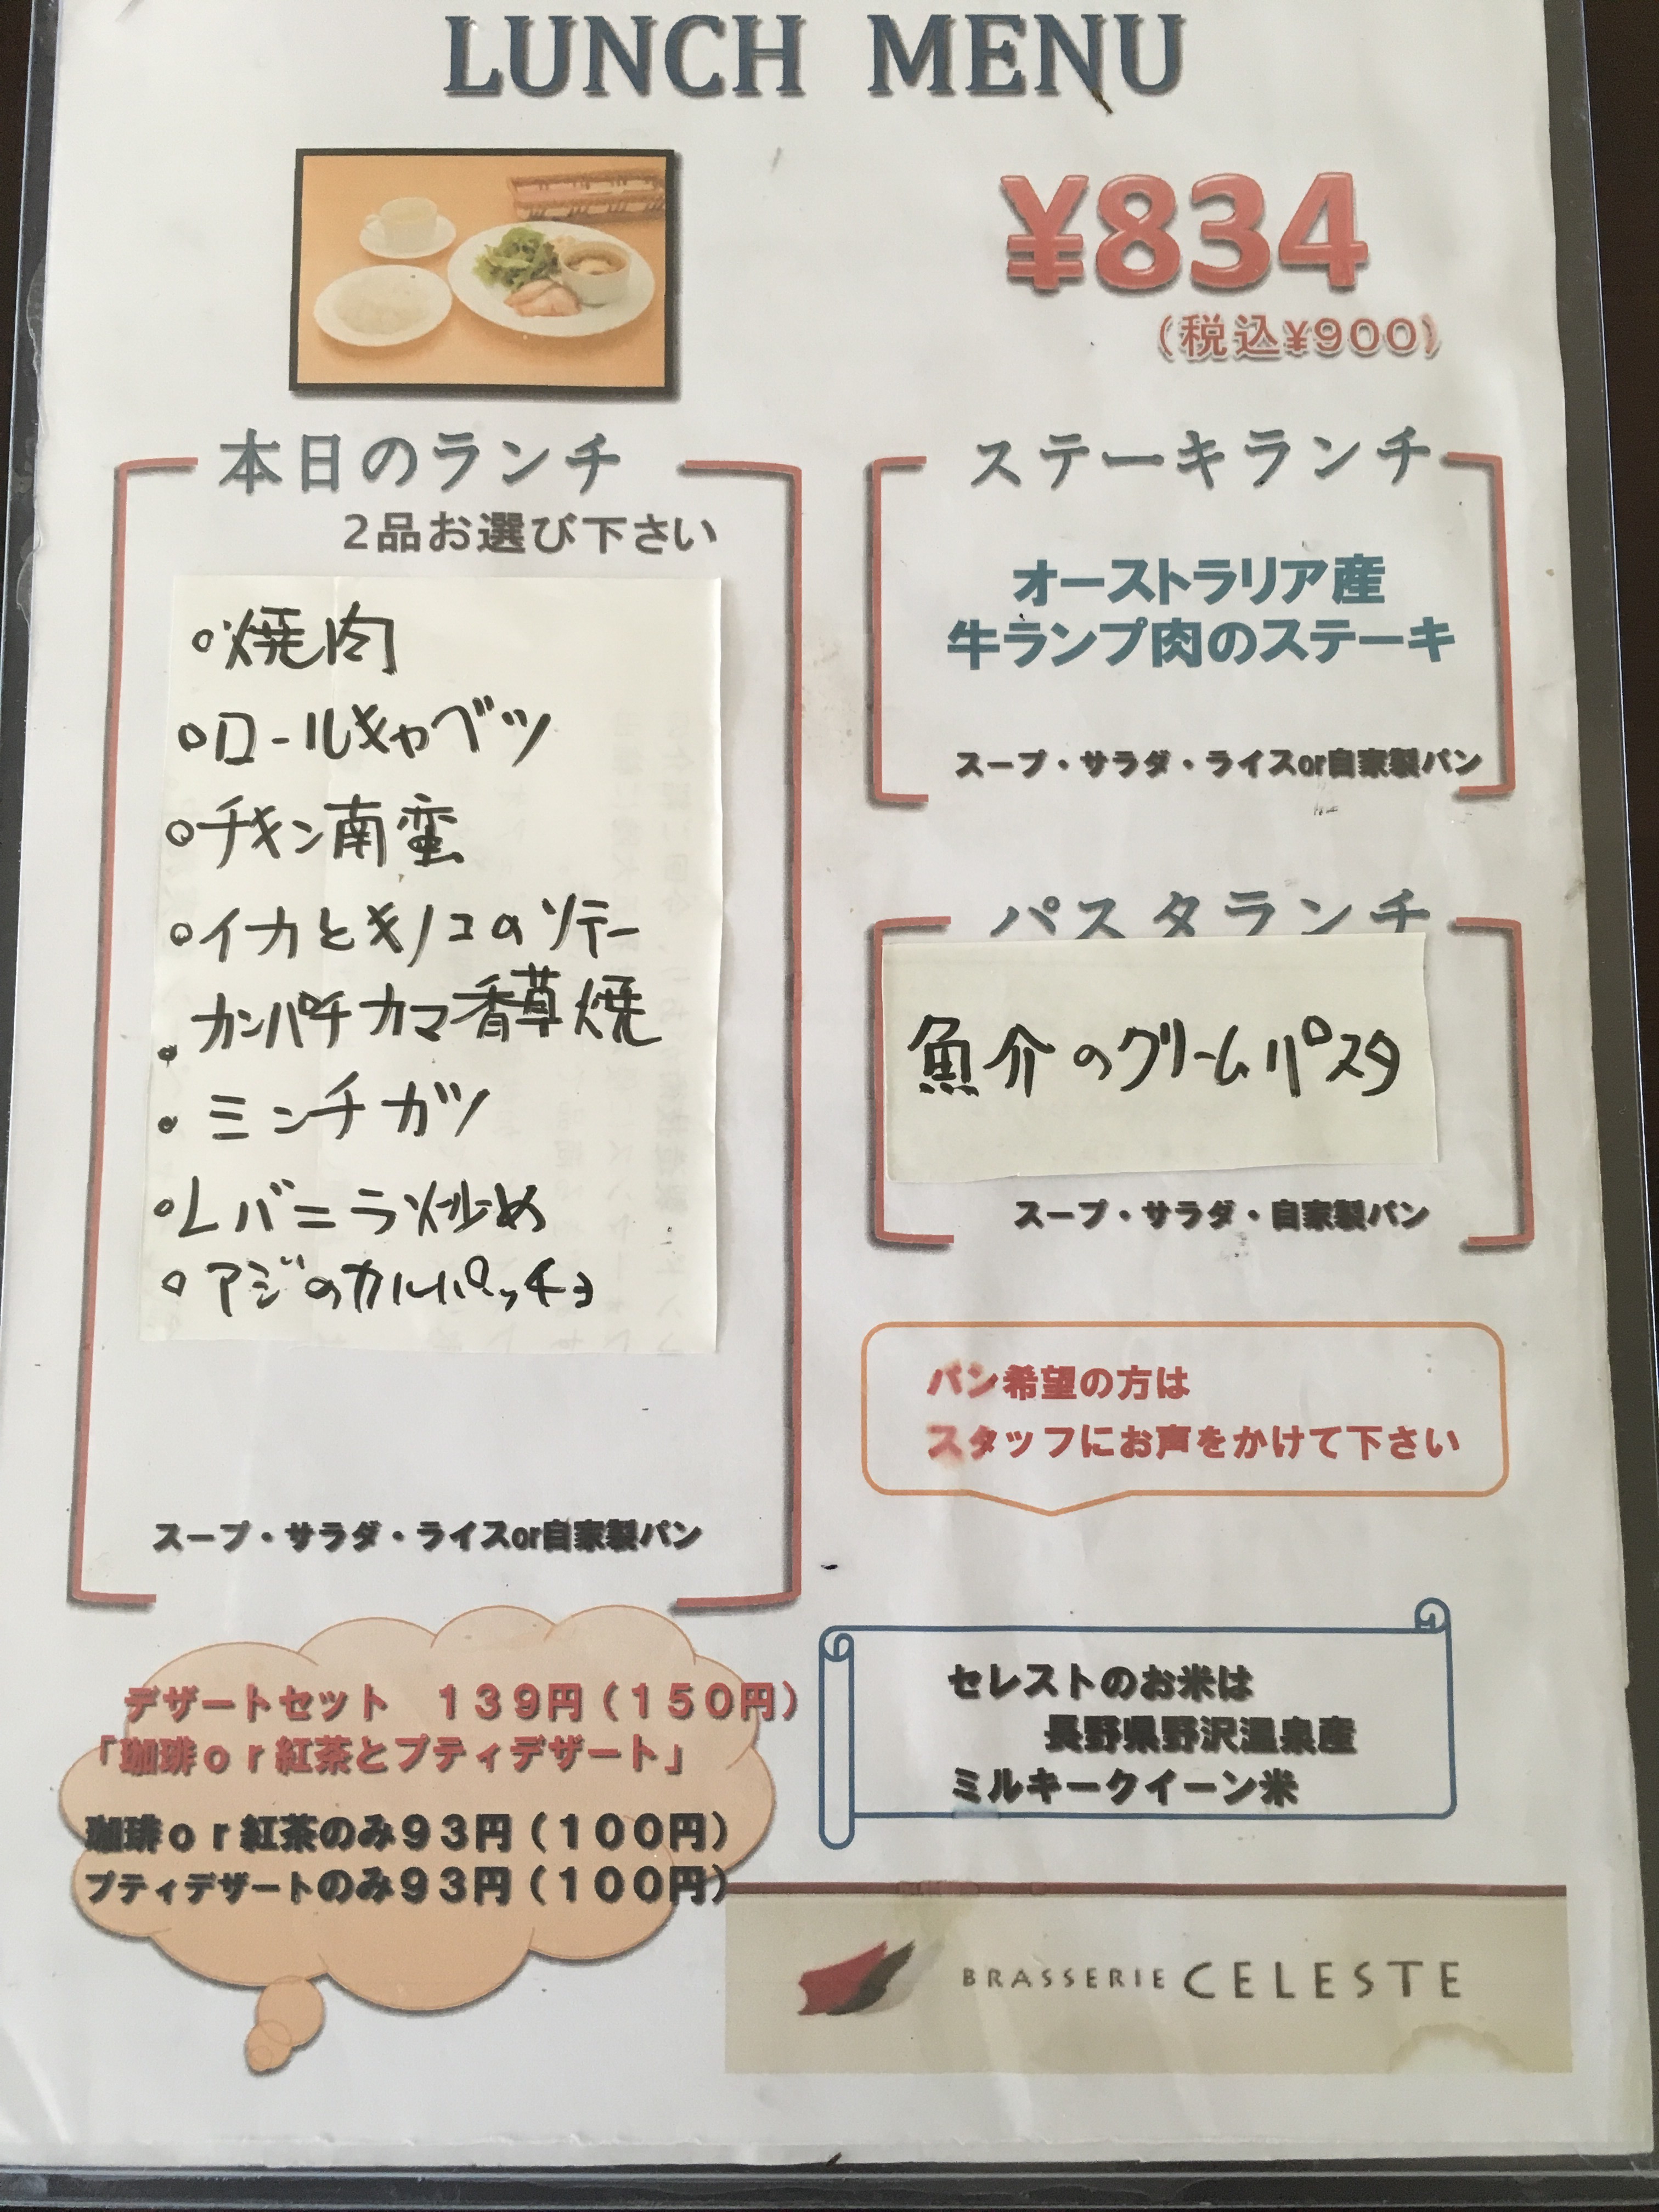 LUNCH MENU
¥834
(税込¥900)
本日のランチ
2品お選び下さい
焼肉
ロールキャベツ
チキン南蛮
イカとキノコのソテー
カンパチカマ香草焼
ミンチカツ
レバニラ炒め
アジのカルパッチョ
スープ・サラダ・ライスor自家製パン
ステーキランチ
オーストラリア産
牛ランプ肉のステーキ
スープ・サラダ・ライスor自家製パン
パスタランチ
魚介のクリームパスタ
スープ・サラダ・自家製パン
パン希望の方は
スタッフにお声をかけて下さい
デザートセット　139円(150円)
「珈琲or紅茶とプティデザート」
珈琲or紅茶のみ93円(100円)
プティデザートのみ93円(100円)
セレストのお米は
長野県野沢温泉産
ミルキークイーン米
BRASSERIE CELESTE